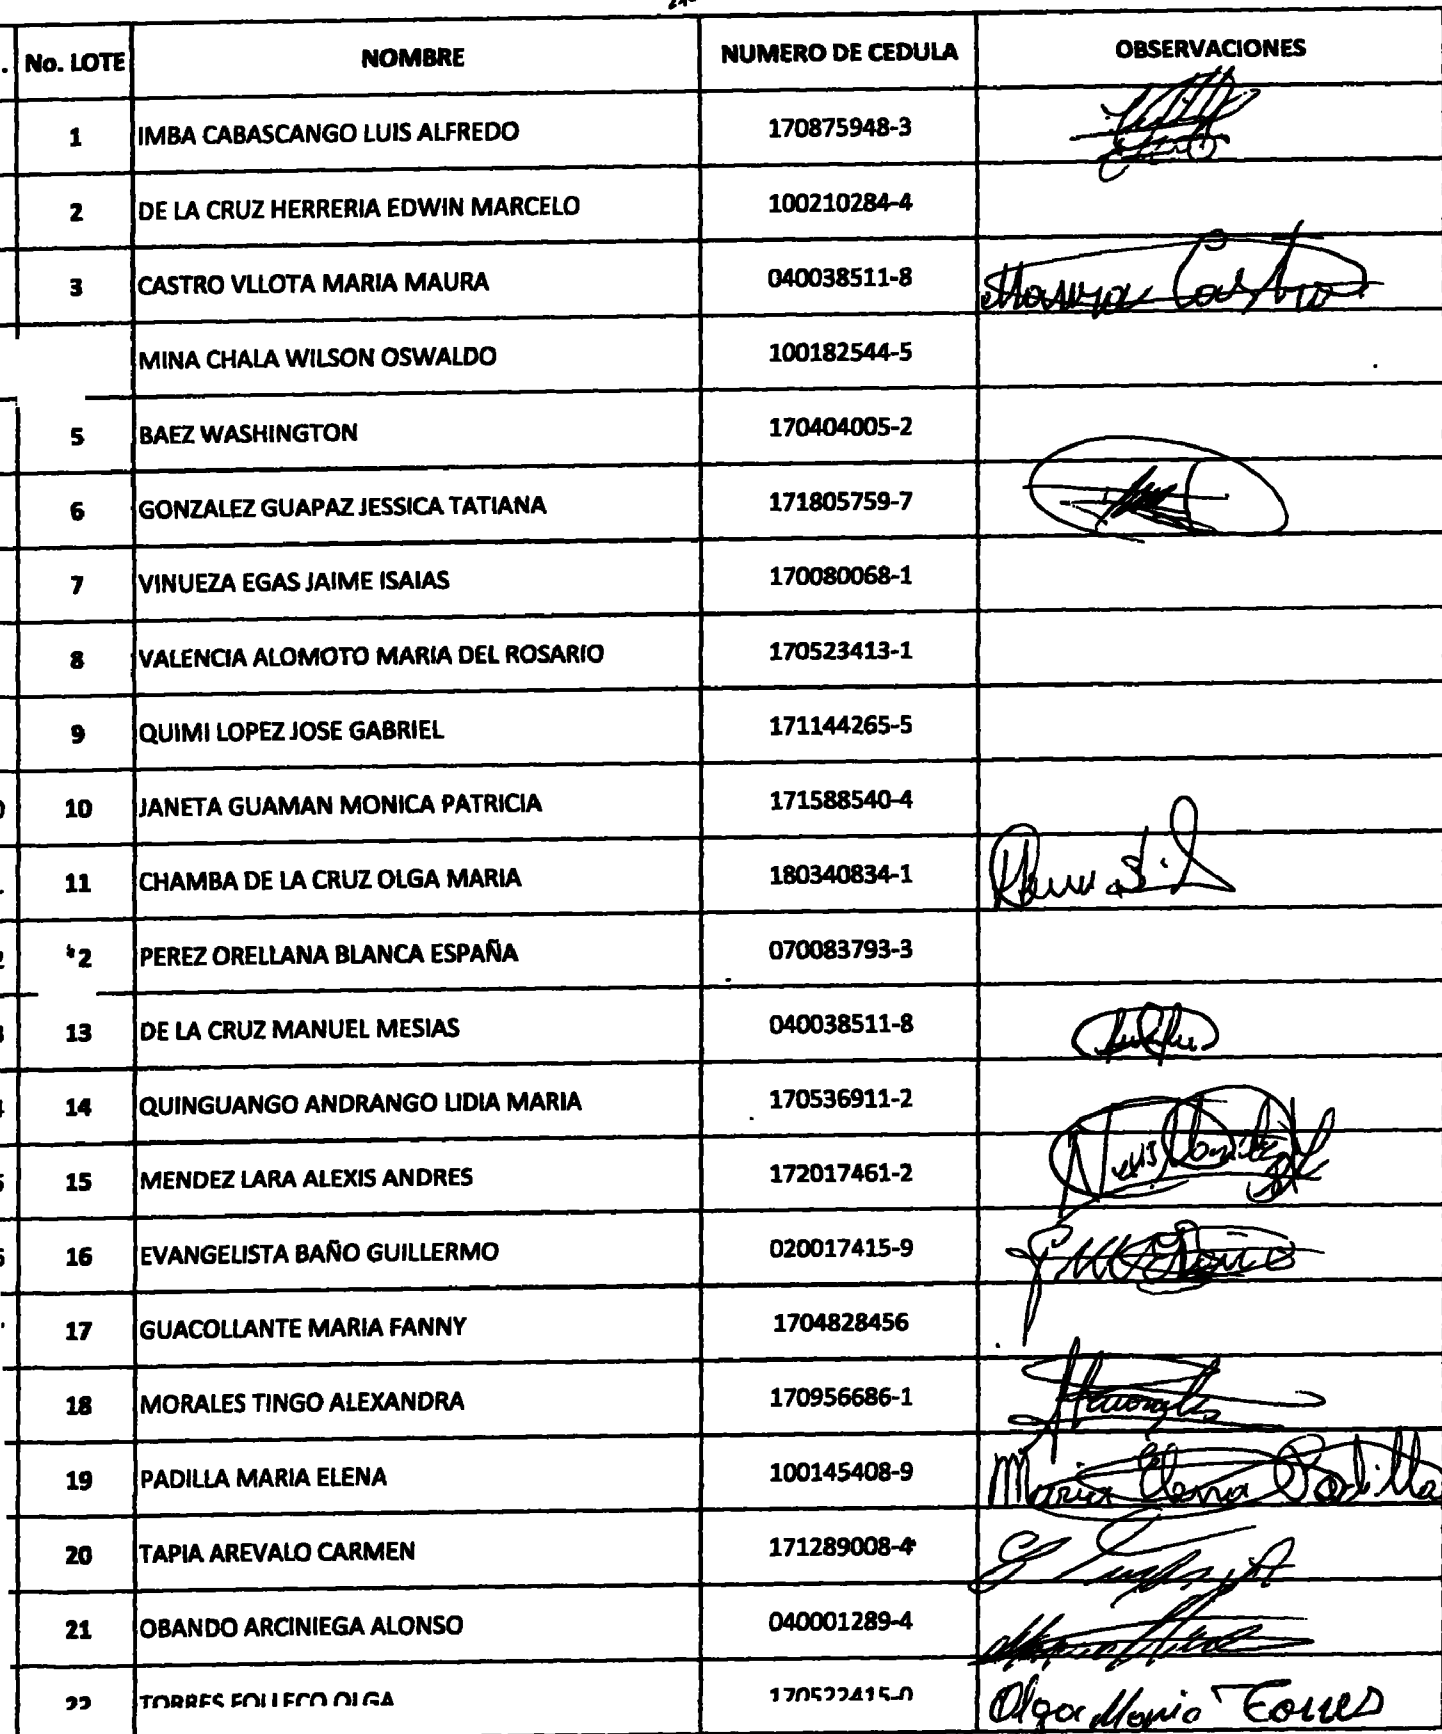 No. LOTE NOMBRE NUMERO DE CEDULA OBSERVACIONES
1 IMBA CABASCANGO LUIS ALFREDO 170875948-3
2 DE LA CRUZ HERRERIA EDWIN MARCELO 100210284-4
3 CASTRO VLLOTA MARIA MAURA 040038511-8 Maura Castro
MINA CHALA WILSON OSWALDO 100182544-5
5 BAEZ WASHINGTON 170404005-2
6 GONZALEZ GUAPAZ JESSICA TATIANA 171805759-7
7 VINUEZA EGAS JAIME ISAIAS 170080068-1
8 VALENCIA ALOMOTO MARIA DEL ROSARIO 170523413-1
9 QUIMI LOPEZ JOSE GABRIEL 171144265-5
10 JANETA GUAMAN MONICA PATRICIA 171588540-4
11 CHAMBA DE LA CRUZ OLGA MARIA 180340834-1
2 PEREZ ORELLANA BLANCA ESPAÑA 070083793-3
13 DE LA CRUZ MANUEL MESIAS 040038511-8
14 QUINGUANGO ANDRANGO LIDIA MARIA 170536911-2
15 MENDEZ LARA ALEXIS ANDRES 172017461-2
16 EVANGELISTA BAÑO GUILLERMO 020017415-9
17 GUACOLLANTE MARIA FANNY 1704828456
18 MORALES TINGO ALEXANDRA 170956686-1
19 PADILLA MARIA ELENA 100145408-9 Maria Elena Padilla
20 TAPIA AREVALO CARMEN 171289008-4
21 OBANDO ARCINIEGA ALONSO 040001289-4
22 TORRES FOLLECO OLGA 170522415-0 Olga Maria Torres